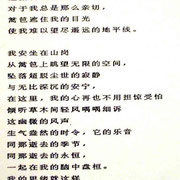 对于我总是那么亲切,
篱笆遮住我的目光
使我难以望尽遥远的地平线。
我安坐在山岗
从篱笆上眺望无限的空间,
坠落超脱尘世的寂静
与无比深沉的安宁,
在这里,我的心再也不用担惊受怕
倾听草木间轻风喁喁细诉
这幽微的风声
生气盎然的时令,它的乐音
同那逝去的季节,
同那逝去的永恒,
一起在我的脑中盘桓。
我的思绪就这样